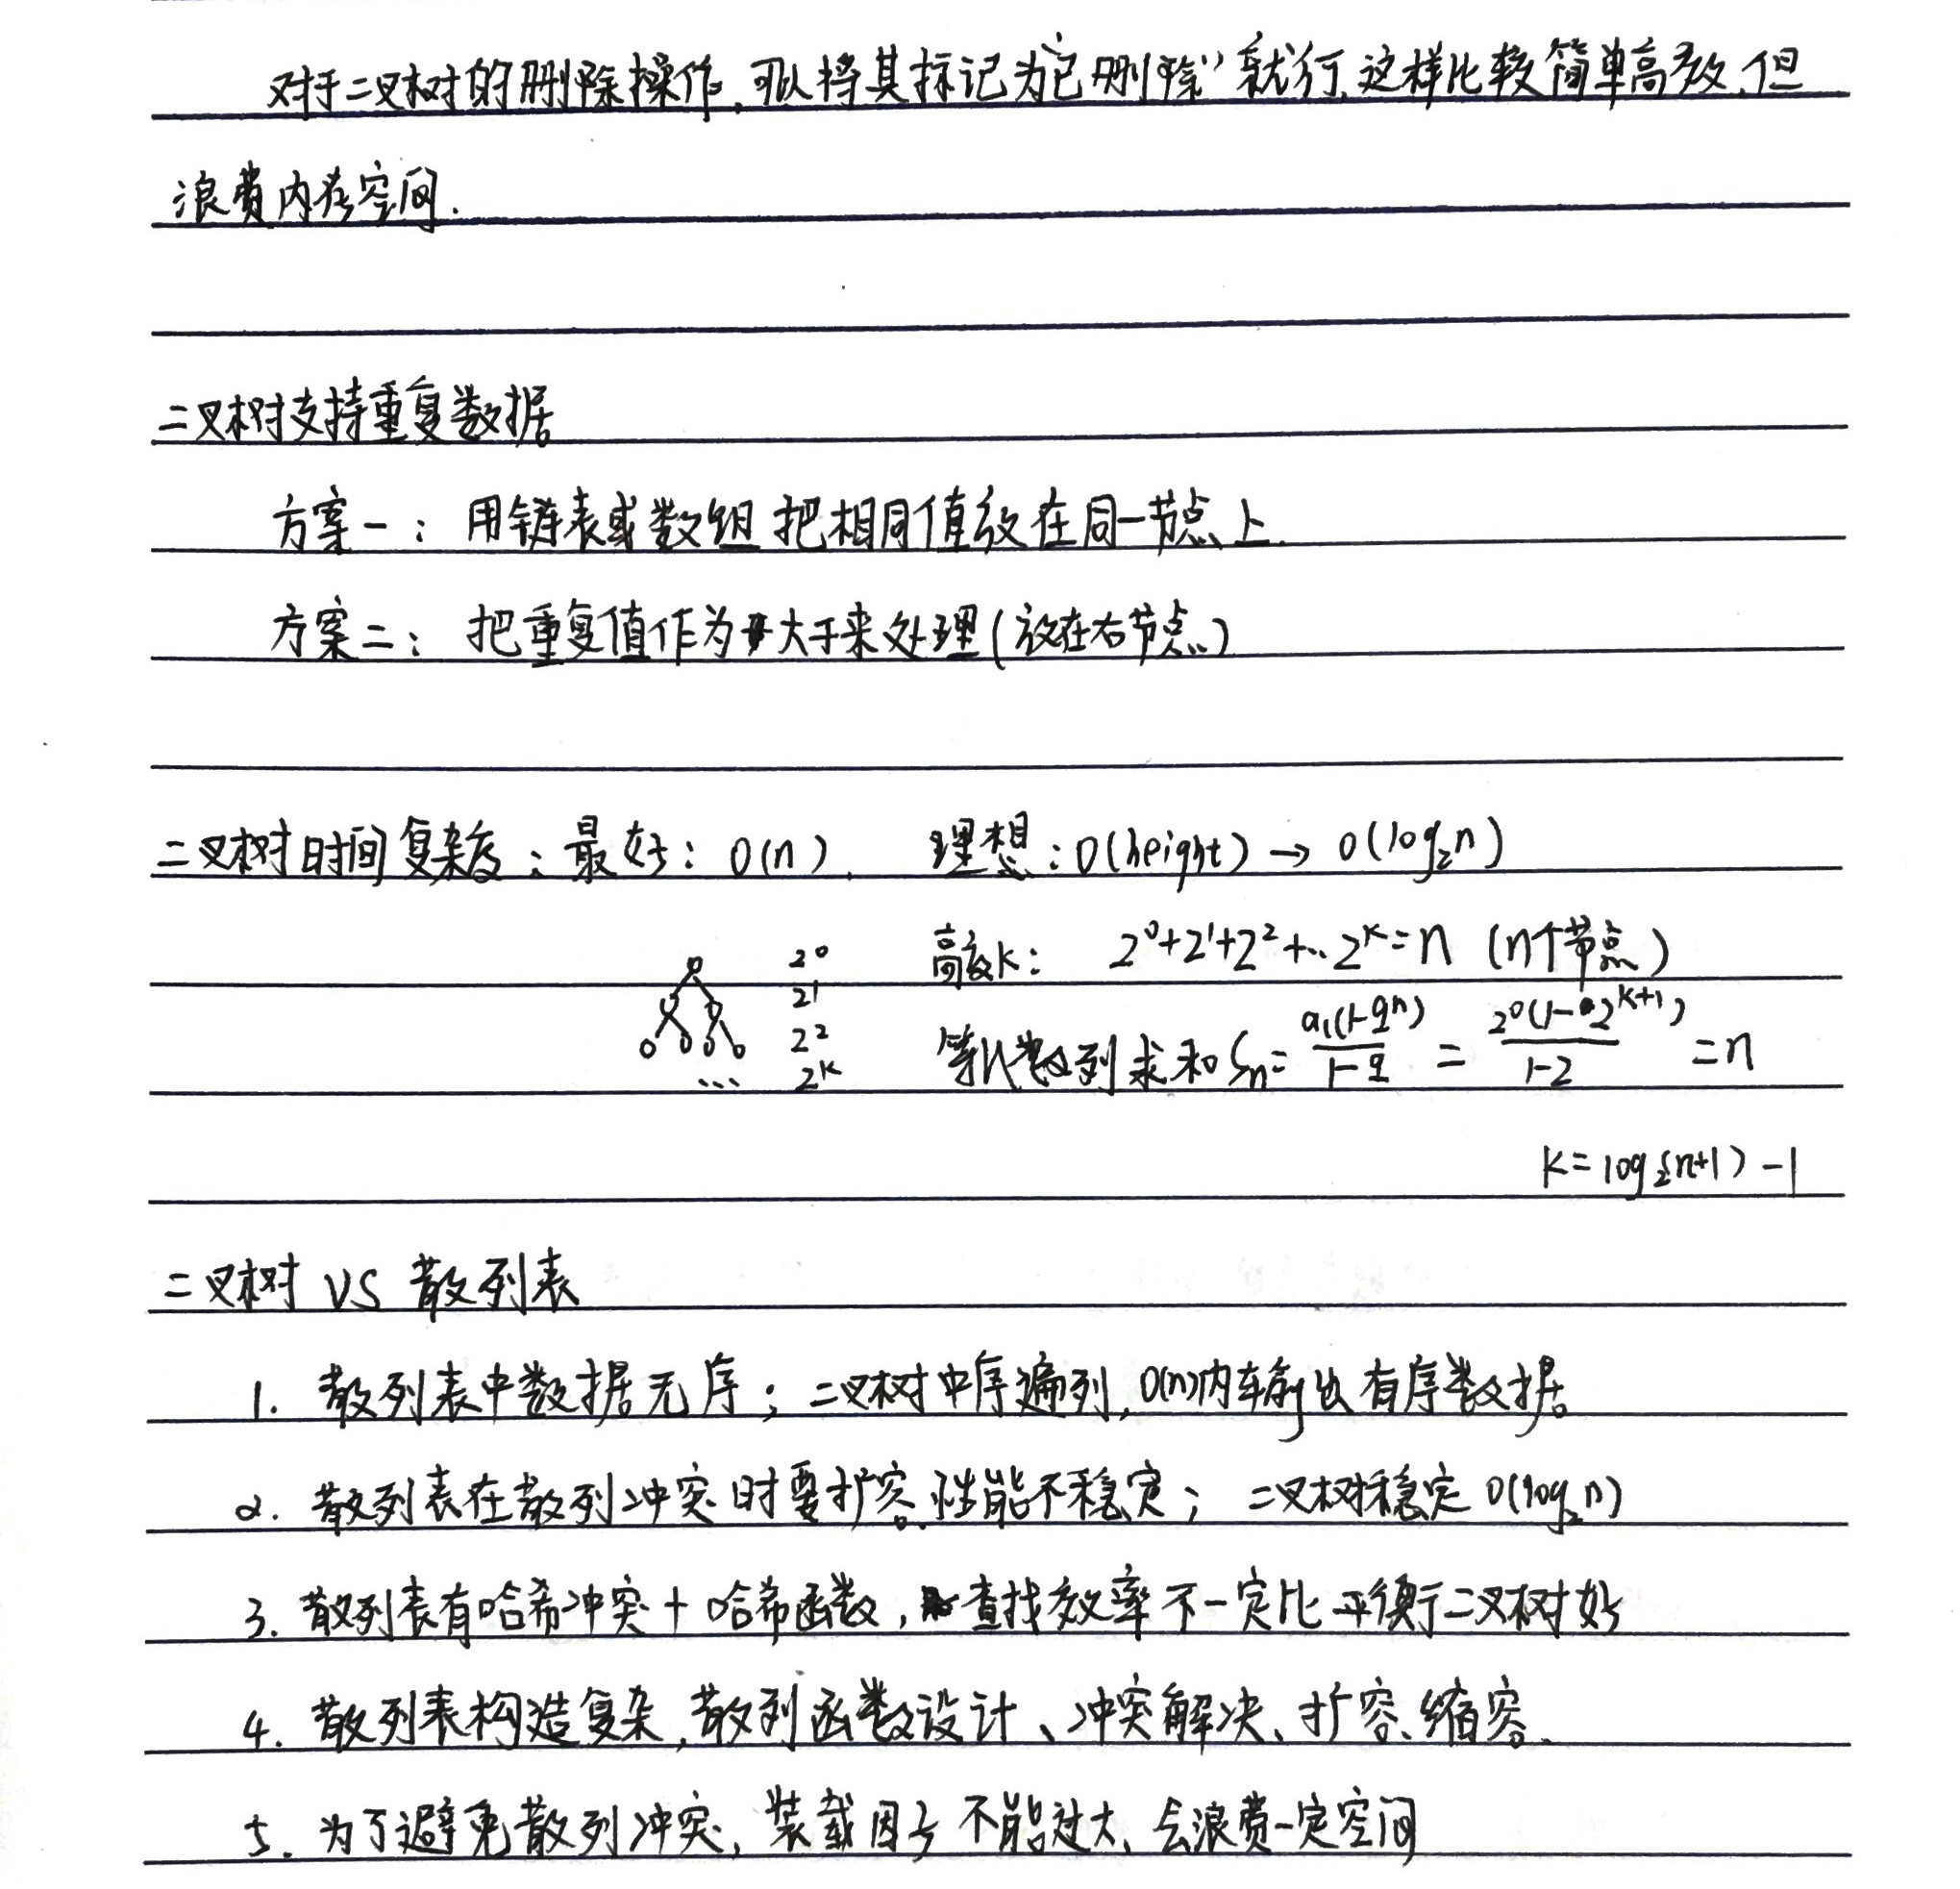 对于二叉树的删除操作,可以将其标记为“已删除”就行,这样比较简单高效,但
浪费内存空间.
二叉树支持重复数据
方案一: 用链表或数组把相同值放在同一节点上.
方案二: 把重复值作为大于来处理(放在右节点)
二叉树时间复杂度: 最好: O(n), 理想: O(height) → O(log₂n)
2⁰ 高度k: 2⁰+2¹+2²+...2ᵏ=n (n个节点)
2¹
2² 等比数列求和 Sₙ= a₁(1-qⁿ)/(1-q) = 2⁰(1-2ᵏ⁺¹)/(1-2) =n
... 2ᵏ
k=log₂(n+1)-1
二叉树 VS 散列表
1. 散列表中数据无序; 二叉树中序遍列,O(n)内输出有序数据
2. 散列表在散列冲突时要扩容,性能不稳定; 二叉树稳定O(log₂n)
3. 散列表有哈希冲突+哈希函数, 查找效率不一定比平衡二叉树好
4. 散列表构造复杂,散列函数设计、冲突解决、扩容、缩容、
5. 为了避免散列冲突, 装载因子不能过大, 会浪费一定空间